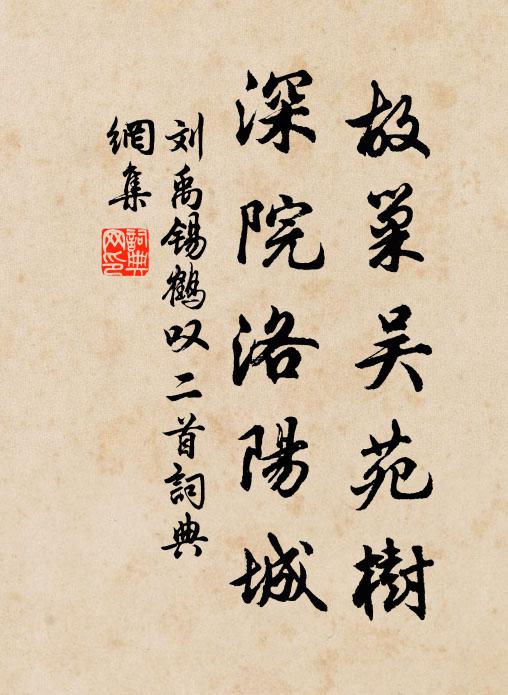 故巢吴苑樹
深院洛陽城
刘禹锡鶴叹二首詞典
網集
詞典
网印